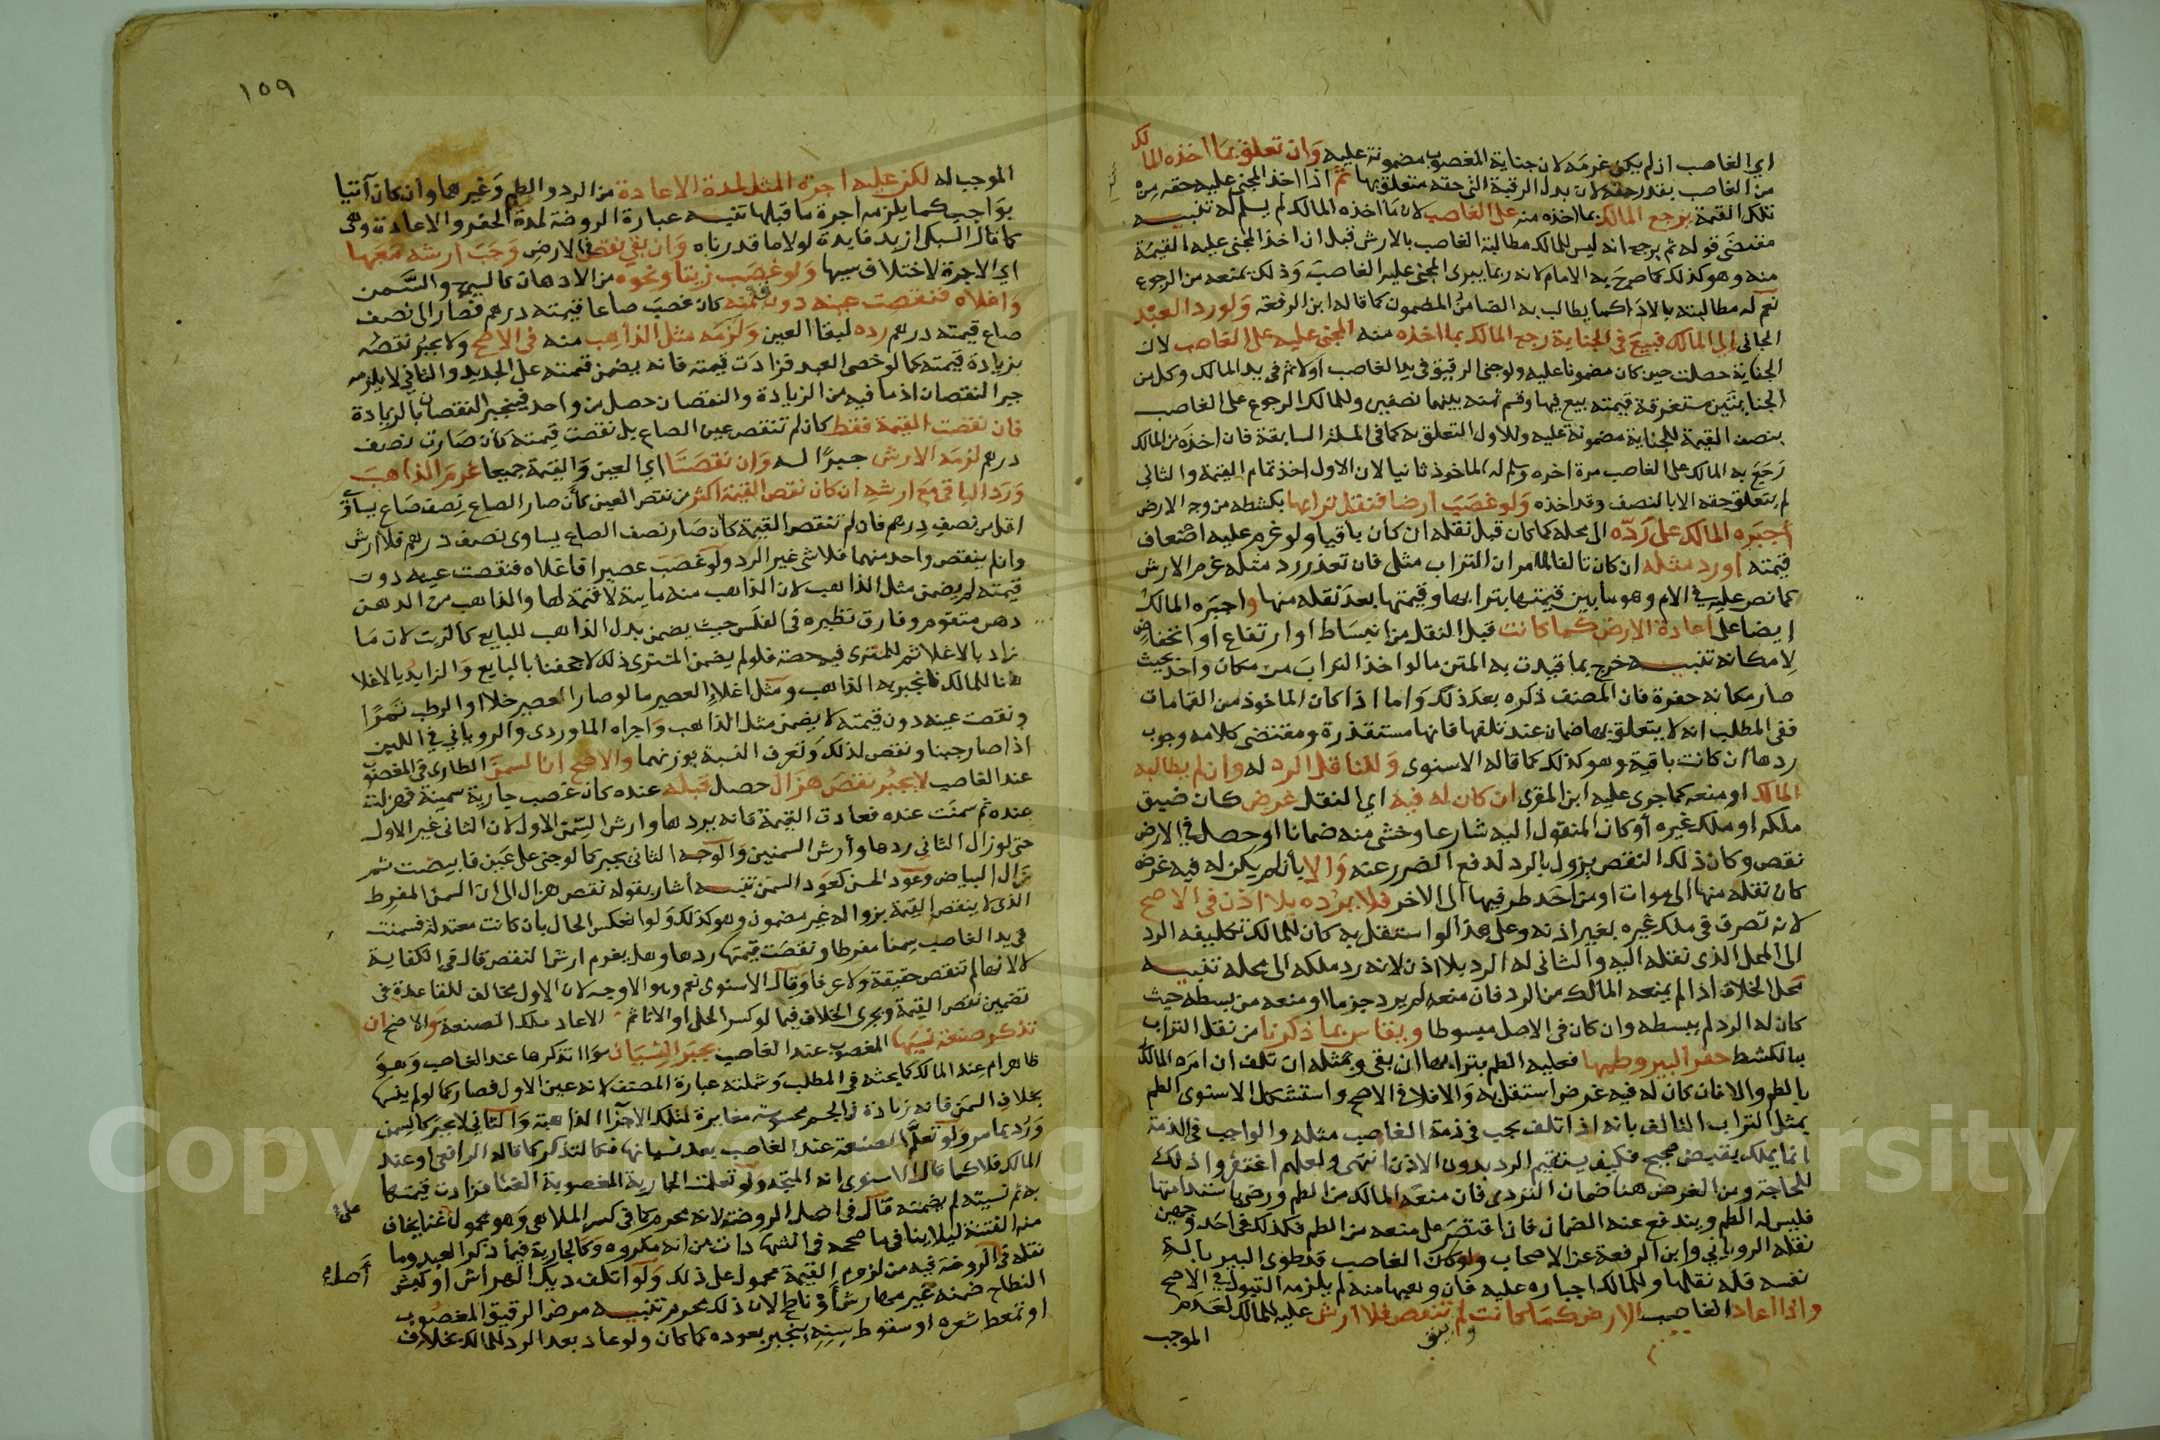 اي الغاصب اذ لم يكن غرمه لان جناية المغصوب مضمونة عليه وان تعلق بما اخذه المالك
من الغاصب بقدر حقه لان بدل الرقبة التي حقه متعلق بها ثم اذا اخذ المجني عليه حقه من
تلك القيمة يرجع المالك بما اخذه منه على الغاصب لان ما اخذه المالك لم يسلم له تنبيه
مقتضى قوله ثم يرجع انه ليس للمالك مطالبة الغاصب بالارش قبل ان اخذ المجني عليه القيمة
منه وهو كذلك كما صرح به الامام لانه ربما يبرئ المجني عليه الغاصب وذلك يمنعه من الرجوع
نعم له مطالبته بالاداء كما يطالب به الضامن المضمون كما قاله ابن الرفعة ولو رد العبد
الجاني الى المالك فبيع في الجناية رجع المالك بما اخذه منه المجني عليه على الغاصب لان
الجناية حصلت حين كان مضمونا عليه ولو جنى الرقيق في يد الغاصب اولا ثم في يد المالك وكل من
الجنايتين مستغرقة قيمته بيع فيهما وقسم ثمنه بينهما نصفين وللمالك الرجوع على الغاصب
بنصف القيمة للجناية مضمونة عليه وللاول التعلق به كما في المسئلة السابقة فان اخذه من المالك
رجع به المالك على الغاصب مرة اخره وسلم له الماخوذ ثانيا لان الاول اخذ تمام القيمة والثاني
لم يتعلق حقه الا بالنصف وقد اخذه ولو غصب ارضا فنقل ترابها بكشطه من وجه الارض
اجبره المالك على رده الى محله كما كان قبل نقله ان كان باقيا ولو غرم عليه اضعاف
قيمته او رد مثله ان كان تالفا لما مر ان التراب مثلي فان تعذر رد مثله غرم الارش
كما نص عليه في الام وهو ما بين قيمتها بترابها وقيمتها بعد نقله منها واجبره المالك
ايضا على اعادة الارض كما كانت قبل النقل من انبساط او ارتفاع او انخفاض
لامكانه تنبيه خرج بما قيدت به المتن ما لو اخذ التراب من مكان واحد بحيث
صار مكانه حفرة فان المصنف ذكره بعد ذلك واما اذا كان الماخوذ من القمامات
ففي المطلب انه لا يتعلق بها ضمان عند تلفها فانها مستقذرة ومقتضى كلامه وجوب
ردها ان كانت باقية وهو كذلك كما قاله الاسنوي وللناقل الرد له وان لم يطالبه
المالك او منعه كما جرى عليه ابن المقري ان كان له فيه اي النقل غرض كان ضيق
ملكه او ملك غيره او كان المنقول اليه شارعا وخشي منه ضمانا او حصل في الارض
نقص وكان ذلك النقص يزول بالرد لدفع الضرر عنه والا بان لم يكن له فيه غرض
كان نقله منها الى موات او من احد طرفيها الى الاخر فلا يرده بلا اذن في الاصح
لانه تصرف في ملك غيره بغير اذنه وعلى هذا لو استقل به كان للمالك تكليفه الرد
الى المحل الذي نقله اليه والثاني له الرد بلا اذن لانه رد ملكه الى محله تنبيه
محل الخلاف اذا لم يمنعه المالك من الرد فان منعه لم يرد جزما او منعه من بسطه حيث
كان له الرد لم يبسطه وان كان في الاصل مبسوطا ويقاس بما ذكرنا من نقل التراب
بالكشط حفر البير وطمها فعليه الطم بترابها ان بقي وبمثله ان تلف ان امره المالك
بالطم والا فان كان له فيه غرض استقل به والا فلا في الاصح واستشكل الاسنوي الطم
بمثل التراب التالف بانه اذا تلف يجب في ذمة الغاصب مثله والواجب في الذمة
انما يملك بقبض صحيح فكيف يستقيم الرد بدون الاذن انتهى ولعلهم اغتفروا ذلك
للحاجة ومن الغرض هنا ضمان التردي فان منعه المالك من الطم ورضي باستدامتها
فليس له الطم ويندفع عنه الضمان فان اقتصر على منعه من الطم فكذلك في احد وجهين
نقله الروياني وابن الرفعة عن الاصحاب ولو كان الغاصب قد طوى البير بالة
نفسه فله نقلها وللمالك اجباره عليه فان وهبها منه لم يلزمه القبول في الاصح
واذا اعاد الغاصب الارض كما كانت لم تنقص فلا ارش عليه للمالك لعدم
الموجب
١٥٩
الموجب له لكن عليه اجرة المثل لمدة الاعادة من الرد والطم وغيرها وان كان آتيا
بواجب كما يلزمه اجرة ما قبلها تنبيه عبارة الروضة لمدة الحفر والاعادة وهي
كما قال السبكي ازيد فايدة لولا ما قدرناه وان بقي نقص في الارض وجب ارشه معها
اي الاجرة لاختلاف سببها ولو غصب زيتا ونحوه من الادهان كالشيرج والسمن
واغلاه فنقصت عينه دون قيمته كان غصب صاعا قيمته درهم فصار الى نصف
صاع قيمته درهم رده لبقا العين ولزمه مثل الذاهب منه في الاصح ولا يجبر نقصه
بزيادة قيمته كما لو خصى العبد فزادت قيمته فانه يضمن قيمته على الجديد والثاني لا يلزمه
جبر النقصان اذ ما فيه من الزيادة والنقصان حصل من واحد فينجبر النقصان بالزيادة
فان نقصت القيمة فقط كان لم تنقص عين الصاع بل نقصت قيمته كان صارت نصف
درهم لزمه الارش جبرا له وان نقصتا اي العين والقيمة جميعا غرم الذاهب
ورد الباقي مع ارشه ان كان نقص القيمة اكثر من نقص العين كان صار الصاع نصف صاع يساوي
اقل من نصف درهم فان لم تنقص القيمة كان صار نصف الصاع يساوي نصف درهم فلا ارش
وان لم ينقص واحد منهما فلا شي غير الرد ولو غصب عصيرا فاغلاه فنقصت عينه دون
قيمته لم يضمن مثل الذاهب لان الذاهب منه مايية لا قيمة لها والذاهب من الدهن
دهن متقوم وفارق نظيره في الفلس حيث يضمن بدل الذاهب للبايع كالزيت لان ما
زاد بالاغلا ثم للمشتري فيه حصة فلو لم يضمن المشتري ذلك لاجحفنا بالبايع والزايد بالاغلا
هنا للمالك فانجبر به الذاهب ومثل اغلاء العصير ما لو صار العصير خلا او الرطب تمرا
ونقصت عينه دون قيمته لا يضمن مثل الذاهب واجراه الماوردي والروياني في اللبن
اذا صار جبنا ونقص لذلك وتعرف النسبة بوزنهما والاصح ان السمن الطاري في المغصوب
عند الغاصب لا يجبر نقص هزال حصل قبله عنده كان غصب جارية سمينة فهزلت
عنده ثم سمنت عنده فعادت القيمة فانه يردها وارش السمن الاول لان الثاني غير الاول
حتى لو زال الثاني ردها وارش السمنين والوجه الثاني يجبر كما لو جنى على عين فابيضت ثم
زال البياض وعود الحسن كعود السمن تنبيه اشار بقوله نقص هزال الى ان السمن المفرط
الذي لا ينقص القيمة بزواله غير مضمون وهو كذلك ولو انعكس الحال بان كانت معتدلة فسمنت
في يد الغاصب سمنا مفرطا ونقصت قيمتها ردها وهل يغرم ارش النقص قال في الكفاية
لا لانها لم تنقص حقيقة ولا عرفا وقال الاسنوي نعم وهو الاوجه لان الاول مخالف للقاعدة في
تضمين نقص القيمة ويجري الخلاف فيما لو كسر الحلي او الانا ثم الاعاد تلك الصنعة والاصح ان
تذكر صنعة نسيها المغصوب عند الغاصب يجبر النسيان سوا تذكرها عند الغاصب وهو
ظاهر ام عند المالك كما بحثه في المطلب وشملته عبارة المصنف لانه عين الاول فصار كما لو لم ينسها
بخلاف السمن فانه زيادة في الجسم محسوسة مغايرة لتلك الاجزا الذاهبة والثاني لا يجبر كالسمن
ورد بما مر ولو تعلم الصنعة عند الغاصب بعد نسيانها فكالتذكر كما قاله الرافعي او عند
المالك فلا كما قال الاسنوي انه المتجه ولو تعلمت الجارية المغصوبة الغنا فزادت قيمتها
به ثم نسيته لم يضمنه قال في اصل الروضة لانه محرم كما في كسر الملاهي وهو محمول على غنا يخاف
منه الفتنة ليلا ينافي ما صححه في الشهادات من انه مكروه وكالجارية فيما ذكر العبد وما
نقله في الروضة فيه من لزوم القيمة محمول على ذلك ولو اتلف ديك الهراش او كبش
النطاح ضمنه غير مهارش او ناطح لان ذلك محرم تنبيه مرض الرقيق المغصوب
او تمعط شعره او سقوط سنه ينجبر بعوده كما كان ولو عاد بعد الرد للمالك بخلاف
على
اصل
Copyright © King Saud University